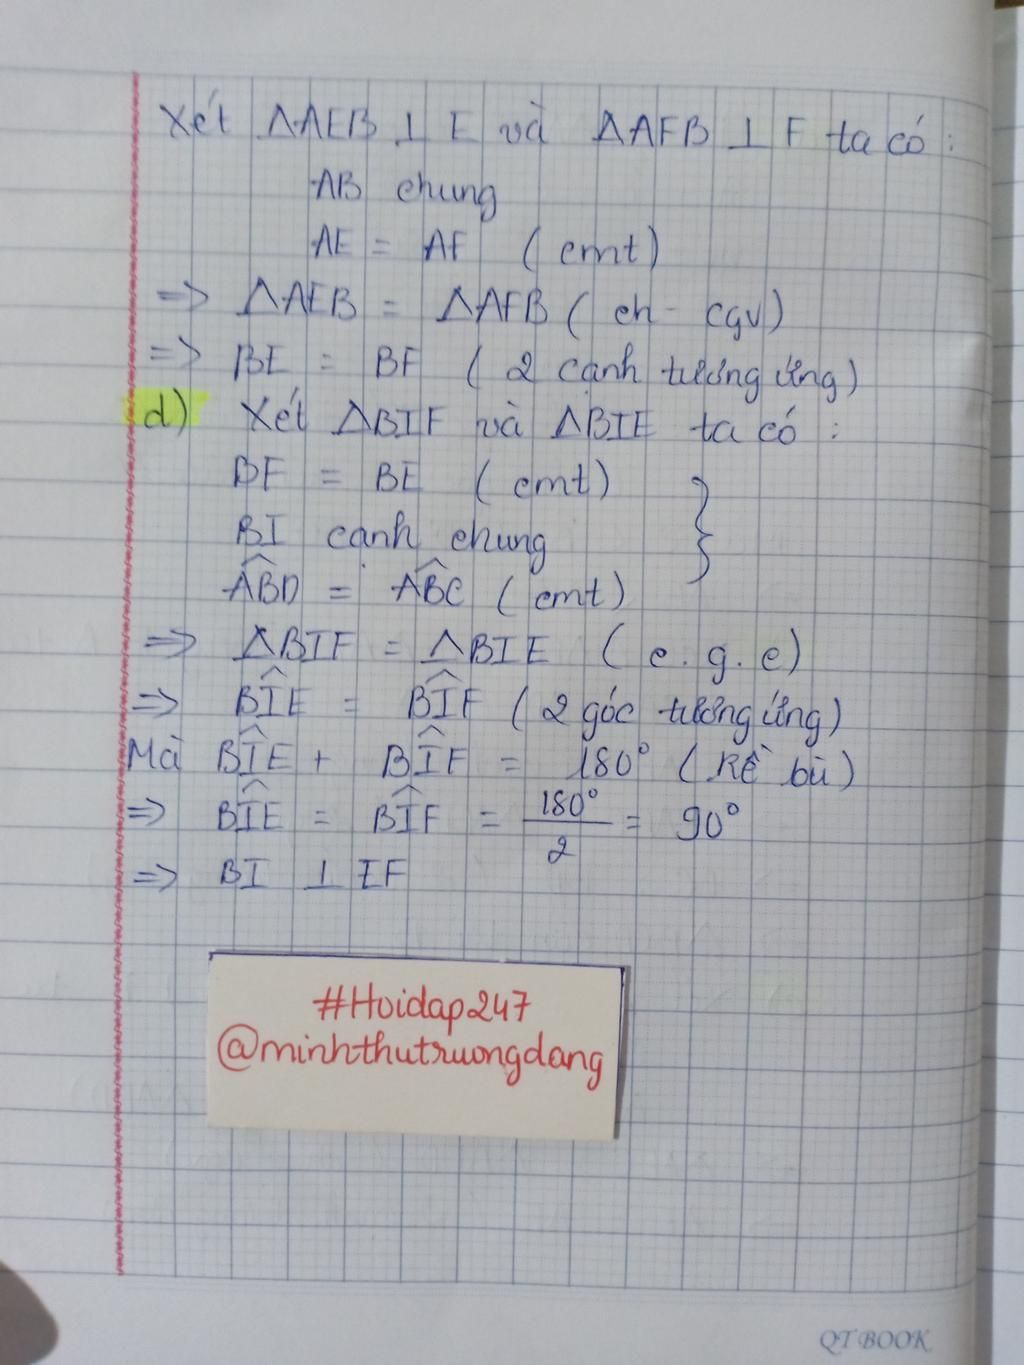 Xét ΔAEB ⊥ E và ΔAFB ⊥ F ta có:
AB chung
AE = AF (cmt)
=> ΔAEB = ΔAFB (ch - cgv)
=> BE = BF (2 cạnh tương ứng)
d) Xét ΔBIF và ΔBIE ta có:
BF = BE (cmt)
BI cạnh chung
ABD̂ = ABĈ (cmt)
=> ΔBIF = ΔBIE (c.g.c)
=> BÎE = BÎF (2 góc tương ứng)
Mà BÎE + BÎF = 180° (kề bù)
=> BÎE = BÎF = 180°/2 = 90°
=> BI ⊥ EF
#Hoidap247
@minhthutruongdang
QT BOOK